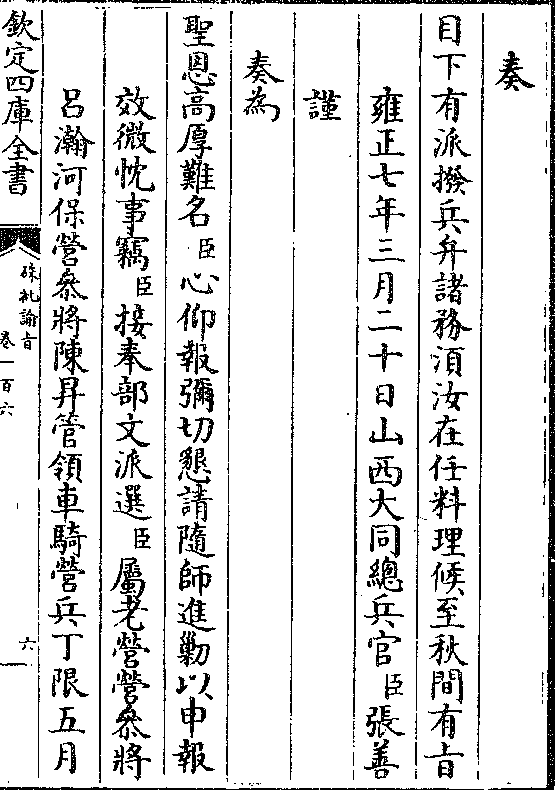 奏
目下有派撥兵弁諸務須汝在任料理候至秋間有旨
雍正七年三月二十日山西大同總兵官臣張善
謹
奏為
聖恩高厚難名臣心仰報彌切懇請隨師進勦以申報
效微忱事竊臣接奉部文派選臣屬老營營叅將
呂瀚河保營叅將陳昇管領車騎營兵丁限五月
欽定四庫全書
硃批諭旨
卷一百六
六